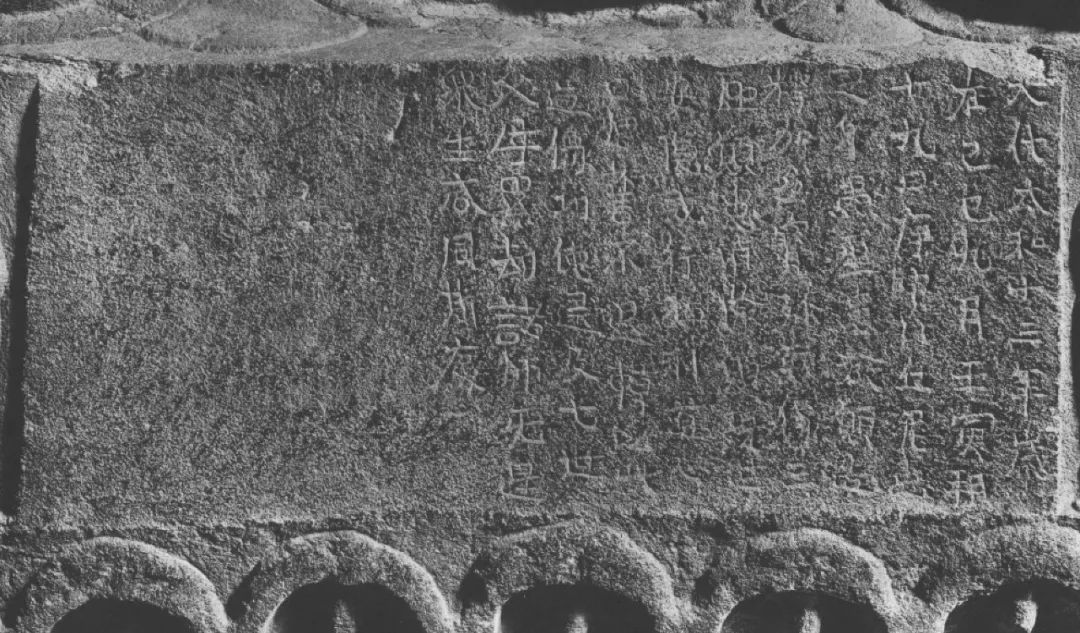 大代太和十三年歲
在己巳九月壬寅朔
十九日庚申比丘尼惠
定身遇重患發願造
釋加多寶彌勒像三
區願患消除願現世
安隱戒行猛利道心
日增誓不退轉以此
造像功德逮及七世
父母累劫諸師无邊
眾生咸同斯慶